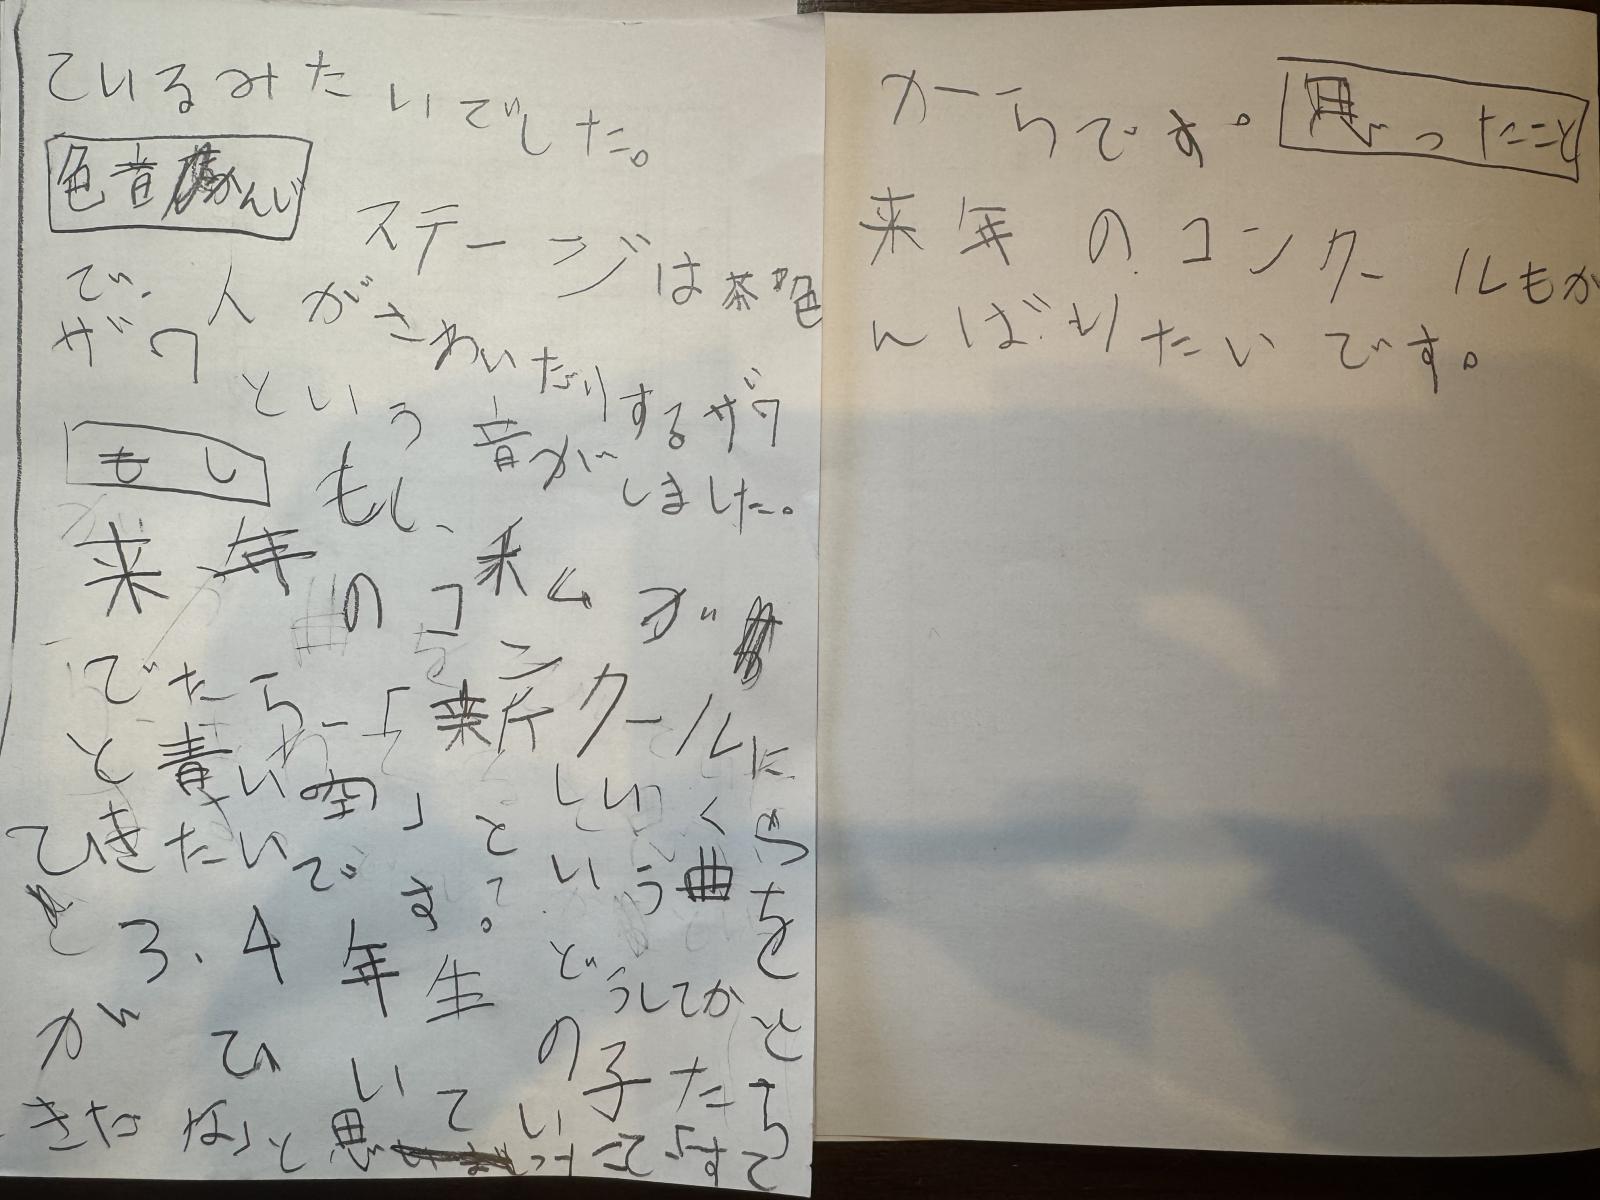 ているみたいでした。
色音かんじ
ステージは茶色
で、人がさわいだりするザワ
ザワという音がしました。
もし
もし、来ムが
来年のコンクールに
でたら、「新しいくらをと
と青い空」という曲を
ひきたいです。どうしてかと
と3.4年生の子たち
がひいていて
きたな」と思ったこて「すて
からです。
思ったこと
来年のコンクールもが
んばりたいです。